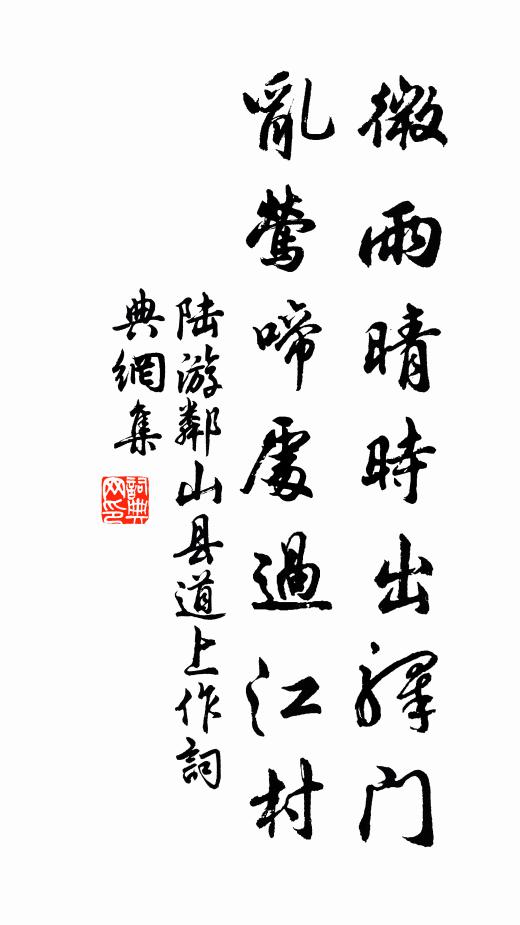 微雨晴時出驛门
亂鶯啼處過江村
陆游鄰山县道上作詞
典網集
詞典网印